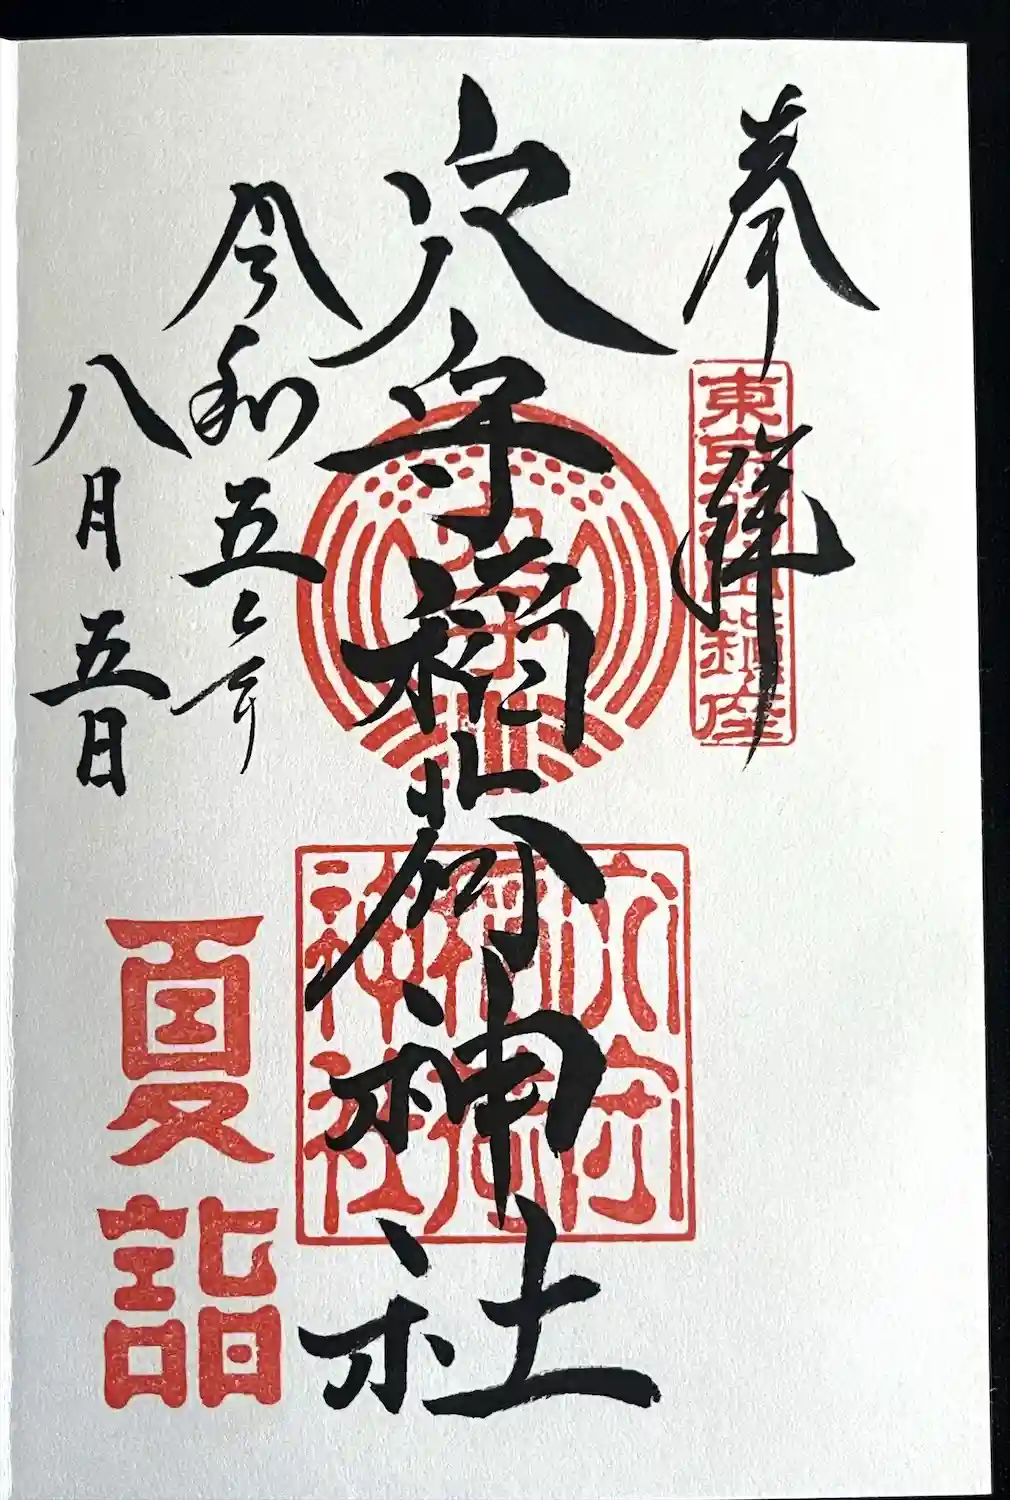 奉拝
東京羽田鎮座
穴守稲荷神社
穴守
稲荷
神社
令和五年
八月五日
夏詣